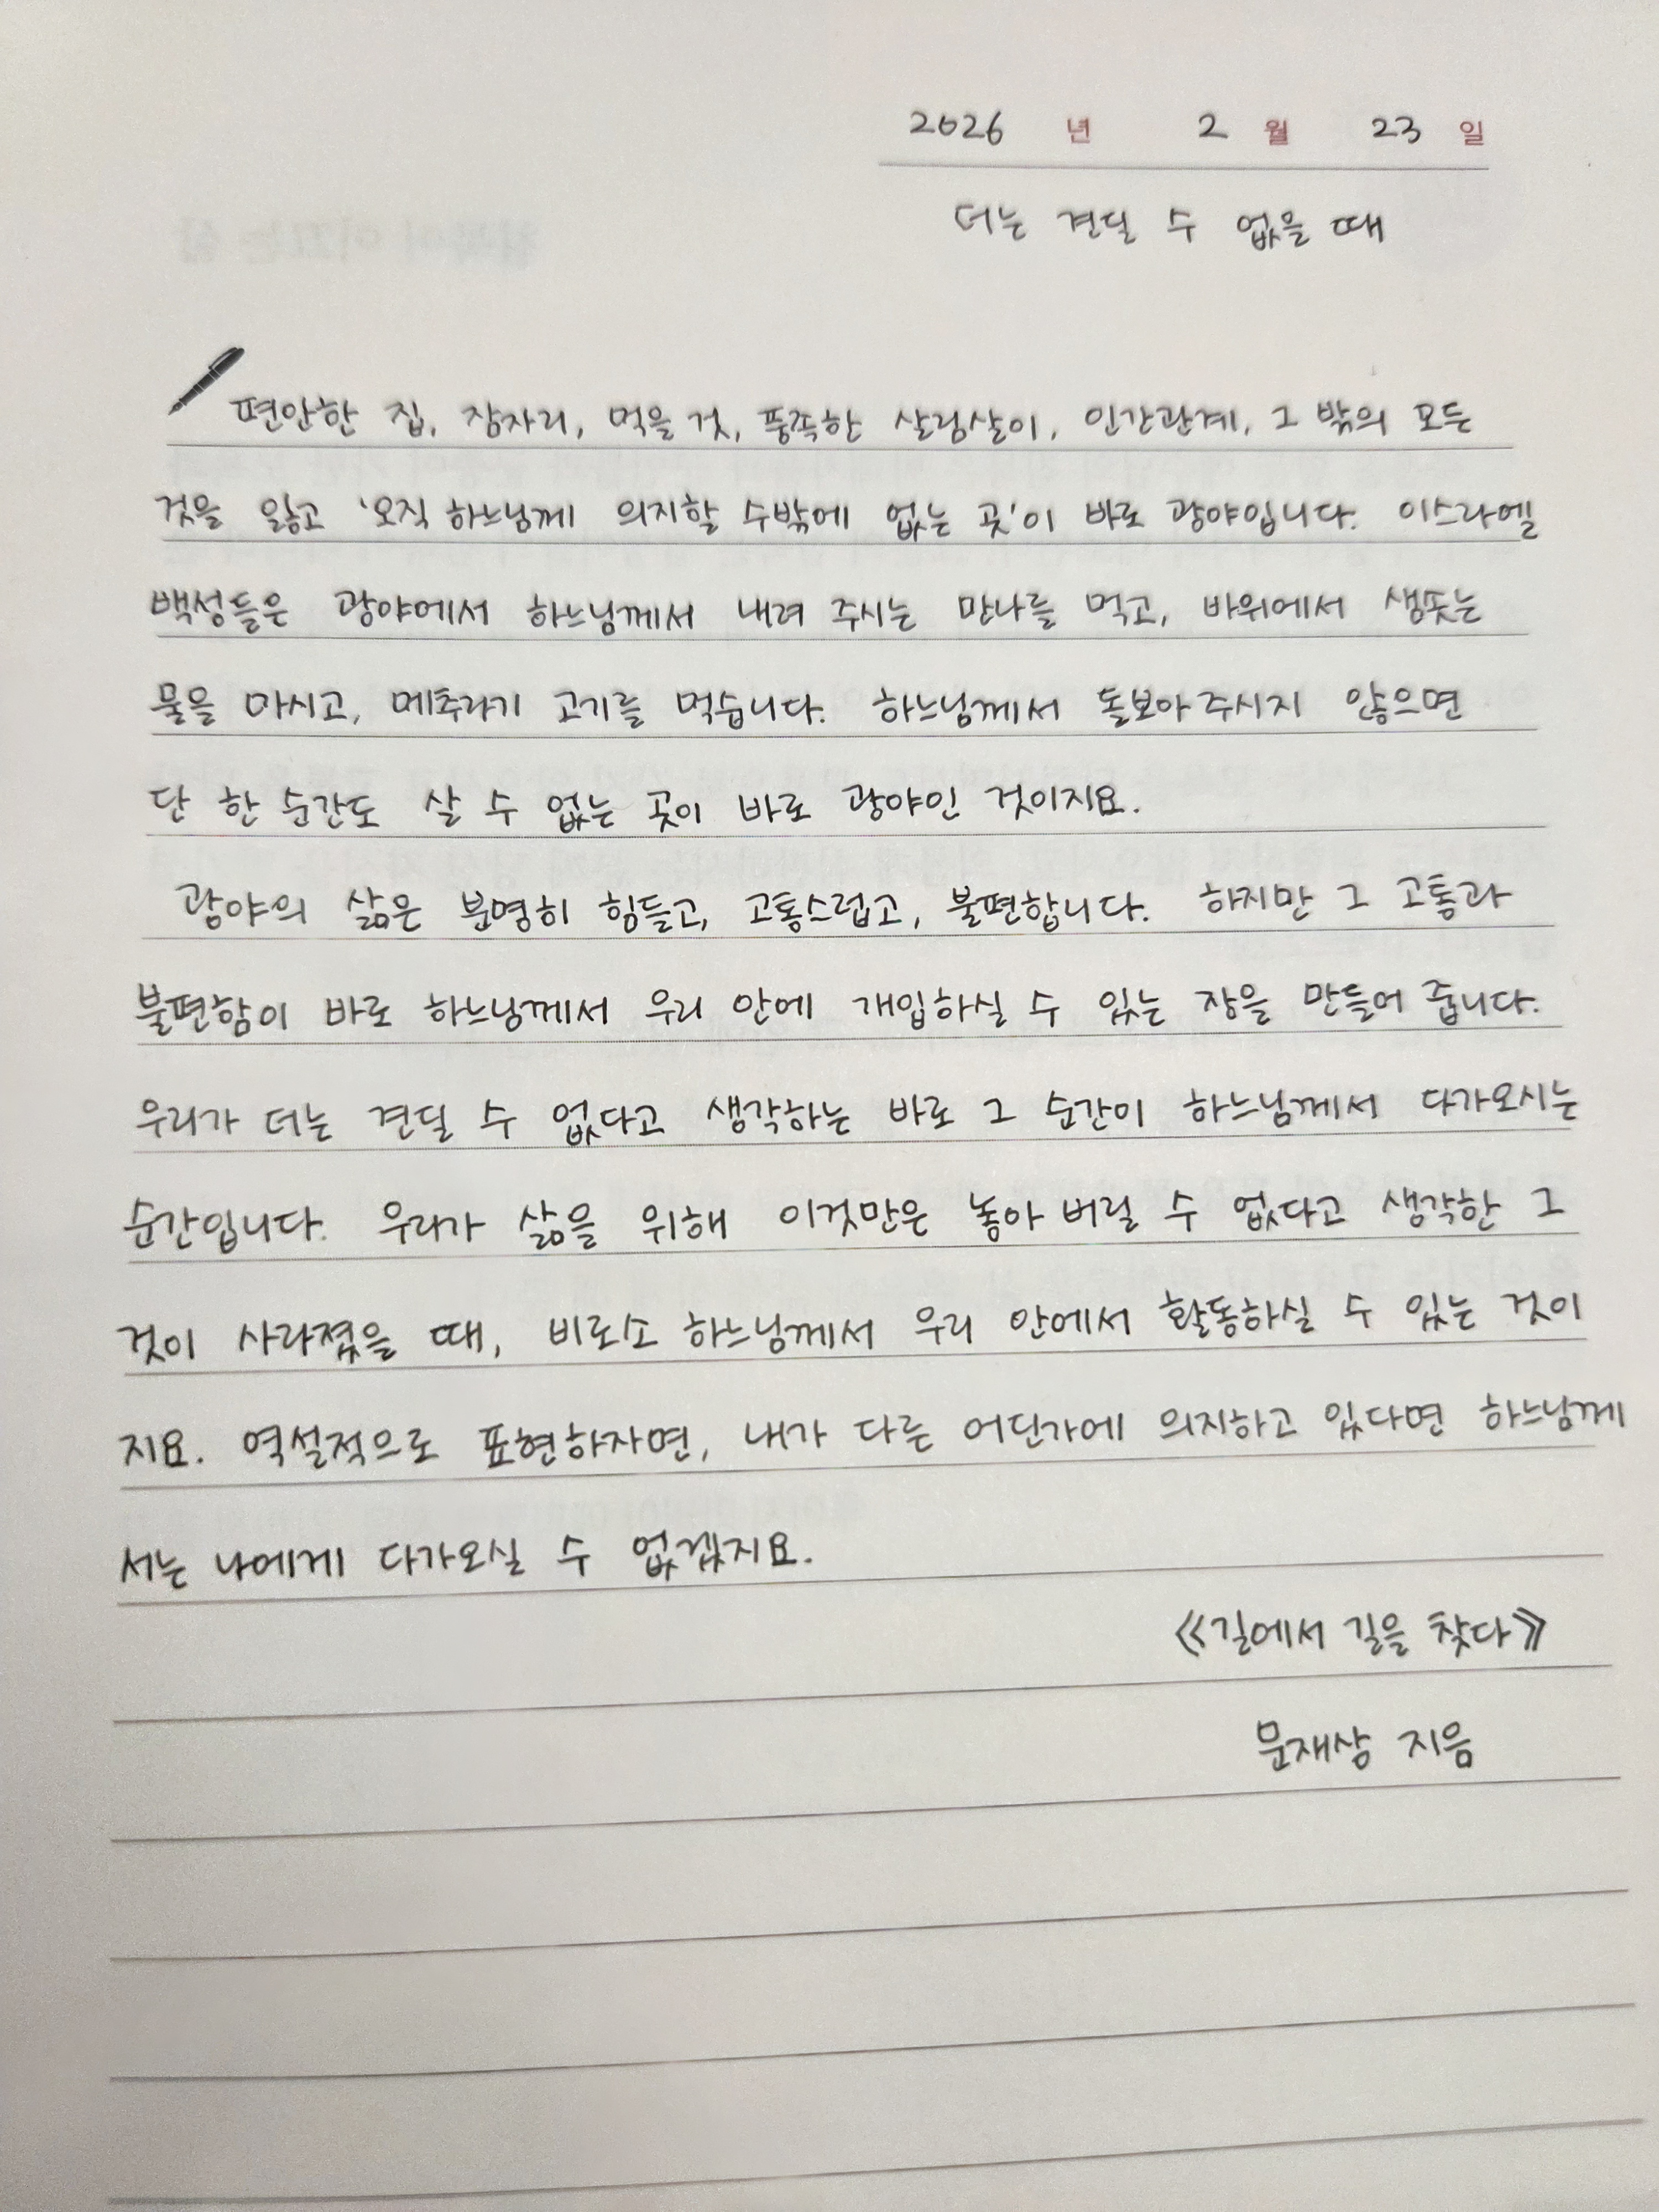 2026 년 2 월 23 일
더는 견딜 수 없을 때
편안한 집, 잠자리, 먹을 것, 풍족한 살림살이, 인간관계, 그 밖의 모든
것을 잃고 '오직 하느님께 의지할 수밖에 없는 곳'이 바로 광야입니다. 이스라엘
백성들은 광야에서 하느님께서 내려 주시는 만나를 먹고, 바위에서 샘솟는
물을 마시고, 메추라기 고기를 먹습니다. 하느님께서 돌보아 주시지 않으면
단 한 순간도 살 수 없는 곳이 바로 광야인 것이지요.
광야의 삶은 분명히 힘들고, 고통스럽고, 불편합니다. 하지만 그 고통과
불편함이 바로 하느님께서 우리 안에 개입하실 수 있는 장을 만들어 줍니다.
우리가 더는 견딜 수 없다고 생각하는 바로 그 순간이 하느님께서 다가오시는
순간입니다. 우리가 삶을 위해 이것만은 놓아 버릴 수 없다고 생각한 그
것이 사라졌을 때, 비로소 하느님께서 우리 안에서 활동하실 수 있는 것이
지요. 역설적으로 표현하자면, 내가 다른 어딘가에 의지하고 있다면 하느님께
서는 나에게 다가오실 수 없겠지요.
《길에서 길을 찾다》
문재상 지음